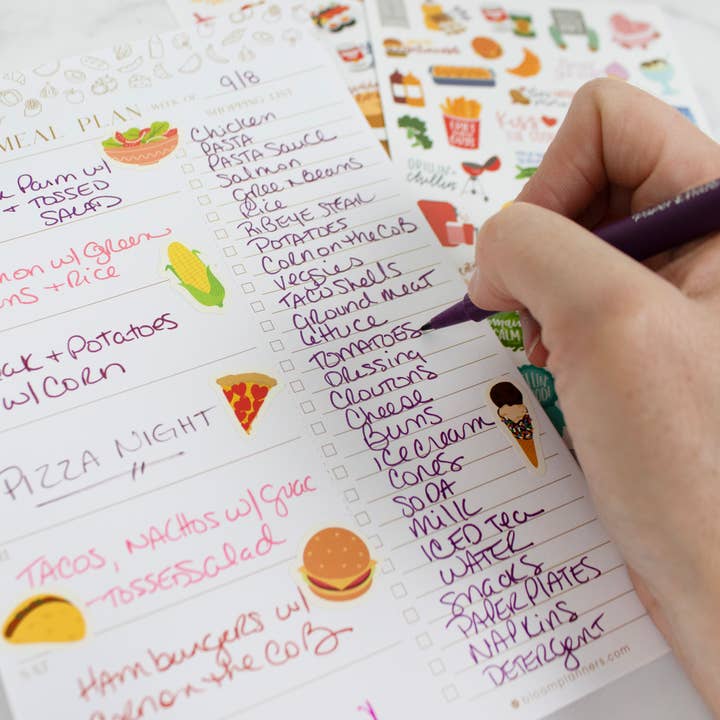 MEAL PLAN WEEK OF 9/8
SHOPPING LIST
Parm w/
+ TOSSED
SALAD
w/ Green
+ Rice
+ Potatoes
w/ CORN
PIZZA NIGHT
TACOS, NACHOS w/ Guac
Hamburgers w/
Corn on the COB
Chicken
PASTA
PASTA Sauce
Salmon
Green Beans
Rice
RIBEYE STEAK
POTATOES
CORN on the COB
Veggies
TACO Shells
Ground meat
lettuce
TOMATOES
Dressing
CROUTONS
Cheese
Buns
ICE CREAM
CONES
SODA
MILK
ICED Tea
WATER
SNACKS
PAPER PLATES
NAPKINS
DETERGENT
bloomplanners.com